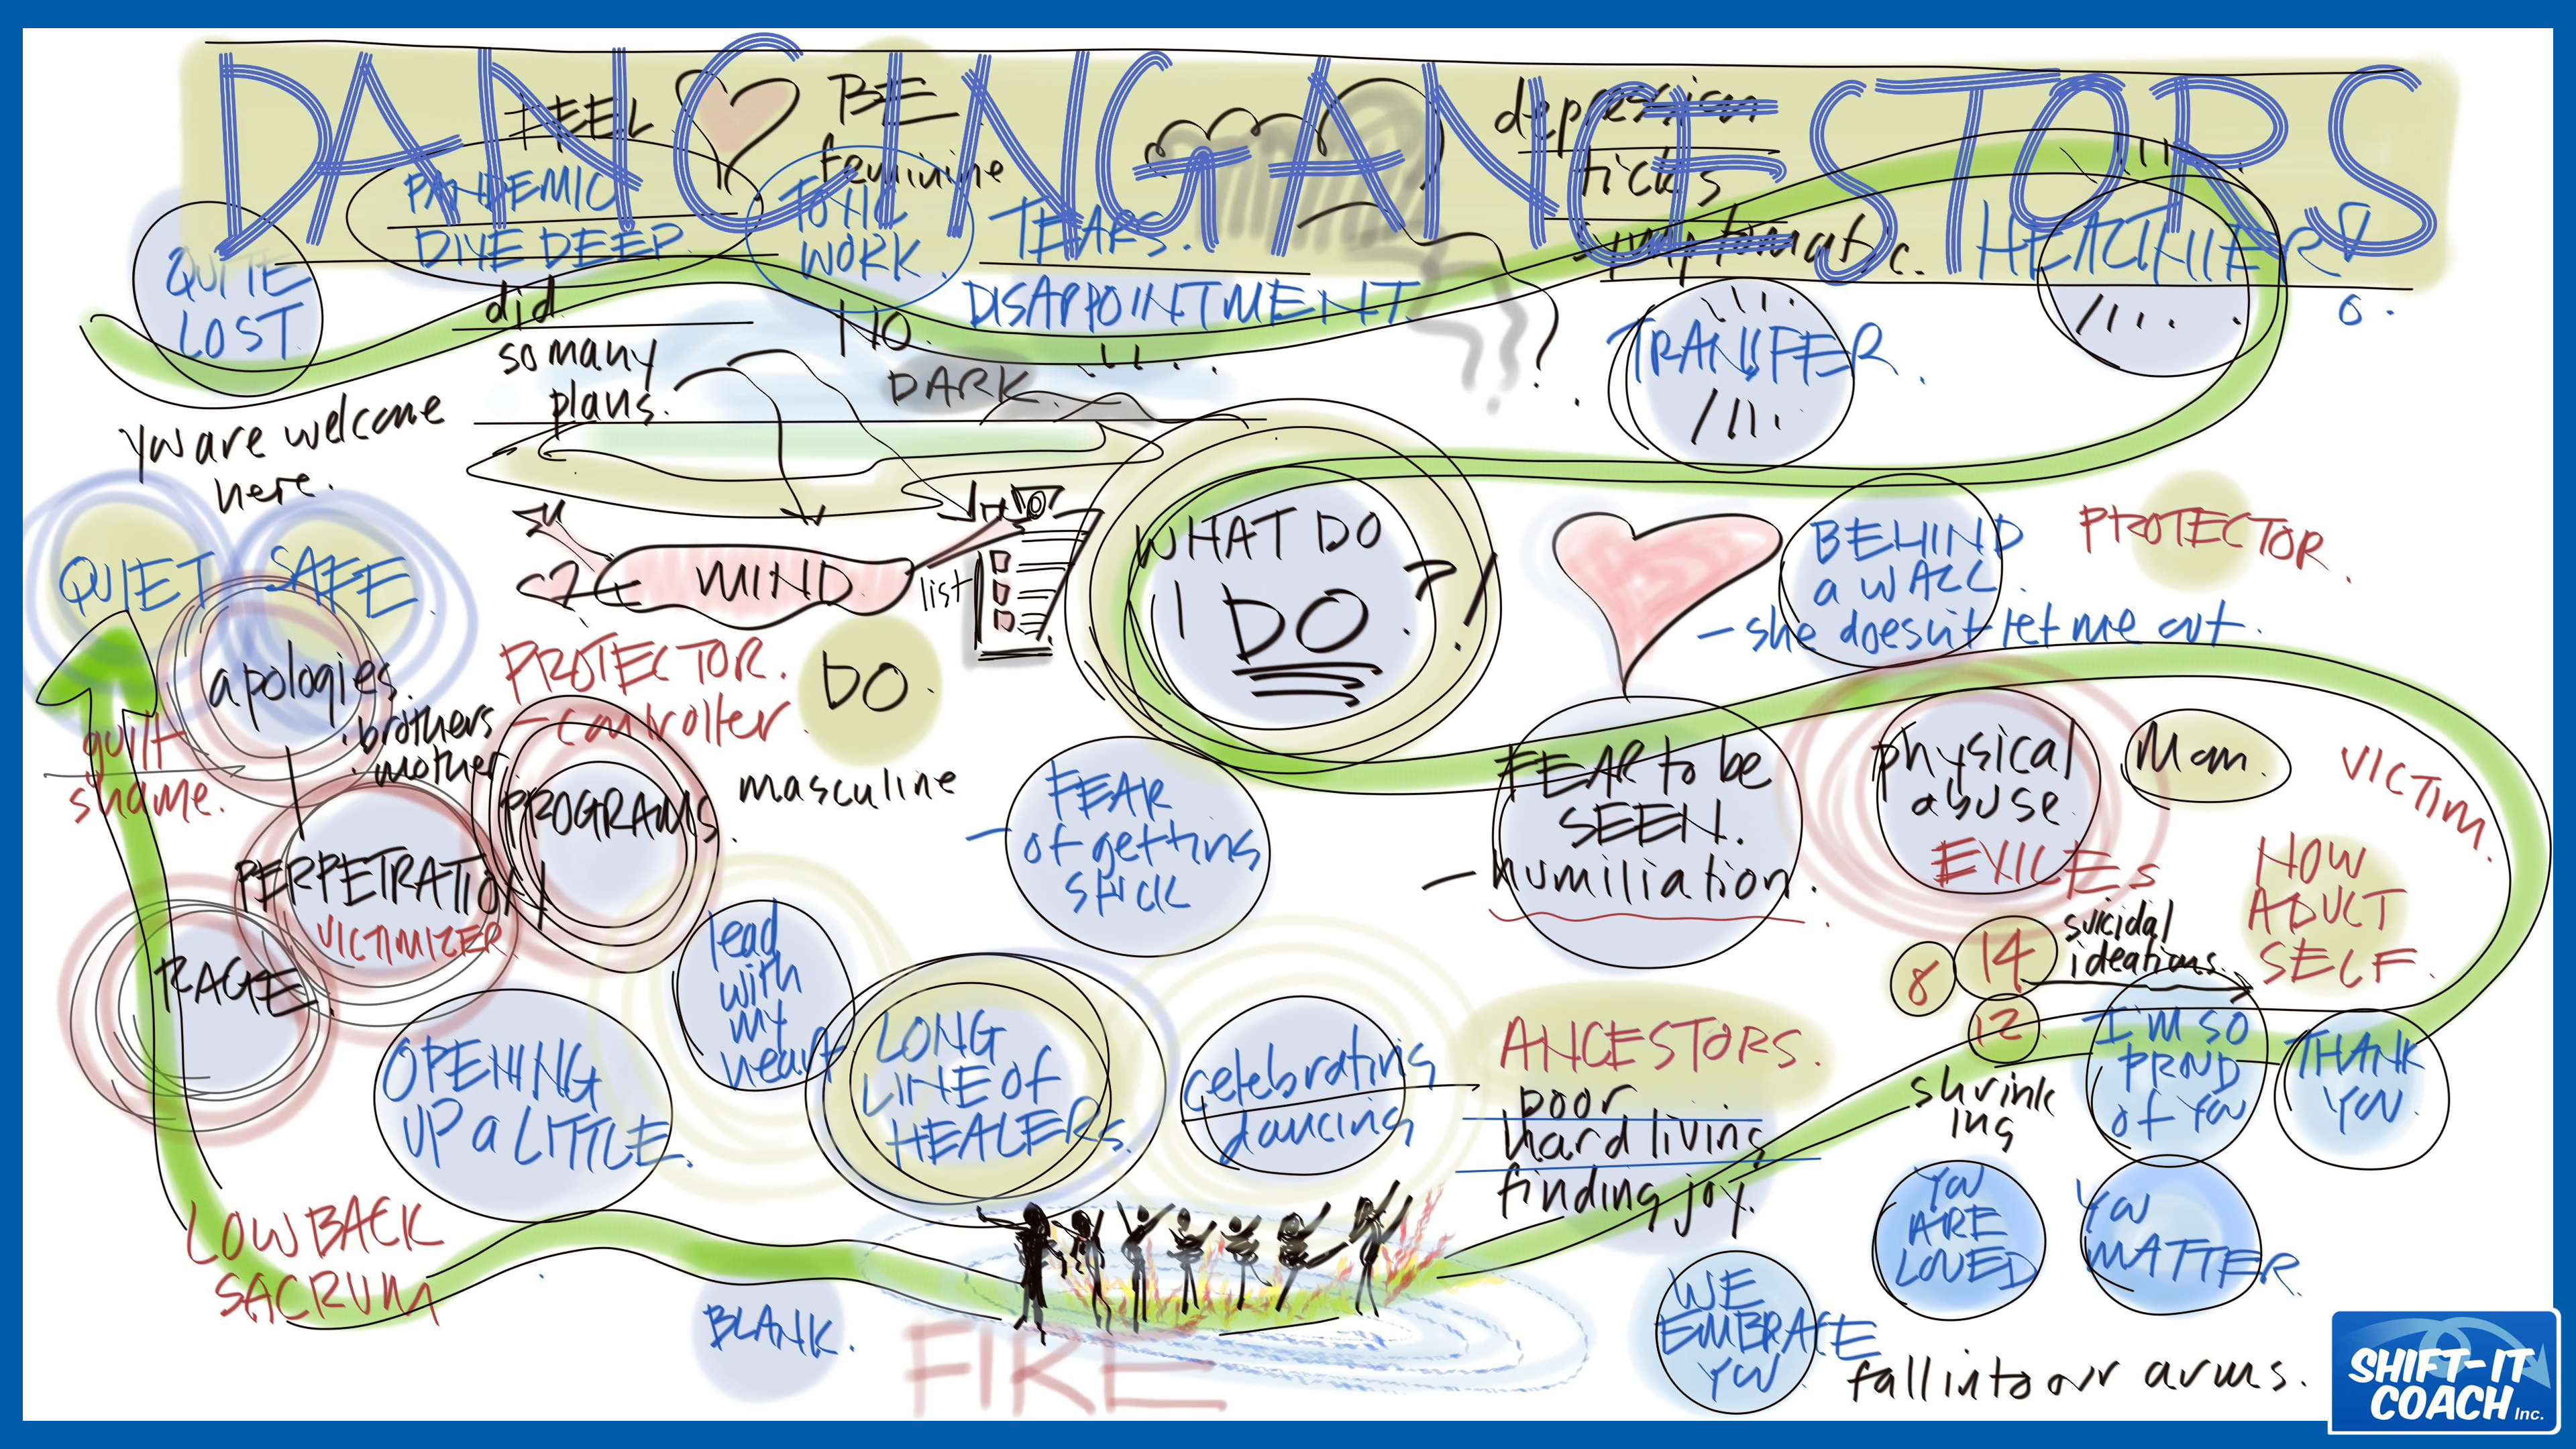 DANCING ANCESTORS
FEEL
BE
feminine
depression
ticks
symptomatic.
PANDEMIC
DIVE DEEP
did
so many
plans.
TO THE
WORK.
NO.
TEARS.
DISAPPOINTMENT.
DARK
?
QUITE
LOST
TRANSFER.
you are welcome
here.
QUIET
SAFE.
apologies.
• brothers
• mother
guilt
shame.
MIND
list
PROTECTOR.
- controller
DO.
masculine
PROGRAMS.
PERPETRATION
VICTIMIZER
RAGE
WHAT DO
I DO?!
BEHIND
a WALL.
- she doesn't let me out.
PROTECTOR.
FEAR
- of getting
STUCK
FEAR to be
SEEN.
- humiliation.
physical
abuse
EXILES
Mom.
VICTIM.
NOW
ADULT
SELF.
8
14
12
suicidal
ideations.
shrink
ing
I'M SO
PROUD
of YOU
THANK
YOU.
YOU
ARE
LOVED
YOU
MATTER.
WE
EMBRACE
YOU
fall into our arms.
ANCESTORS.
poor
hard living
finding joy.
celebrating
dancing
LONG
LINE of
HEALERS.
lead
with
my
heart
OPENING
UP a LITTLE.
LOW BACK
SACRUM
BLANK.
FIRE
SHIFT-IT
COACH Inc.